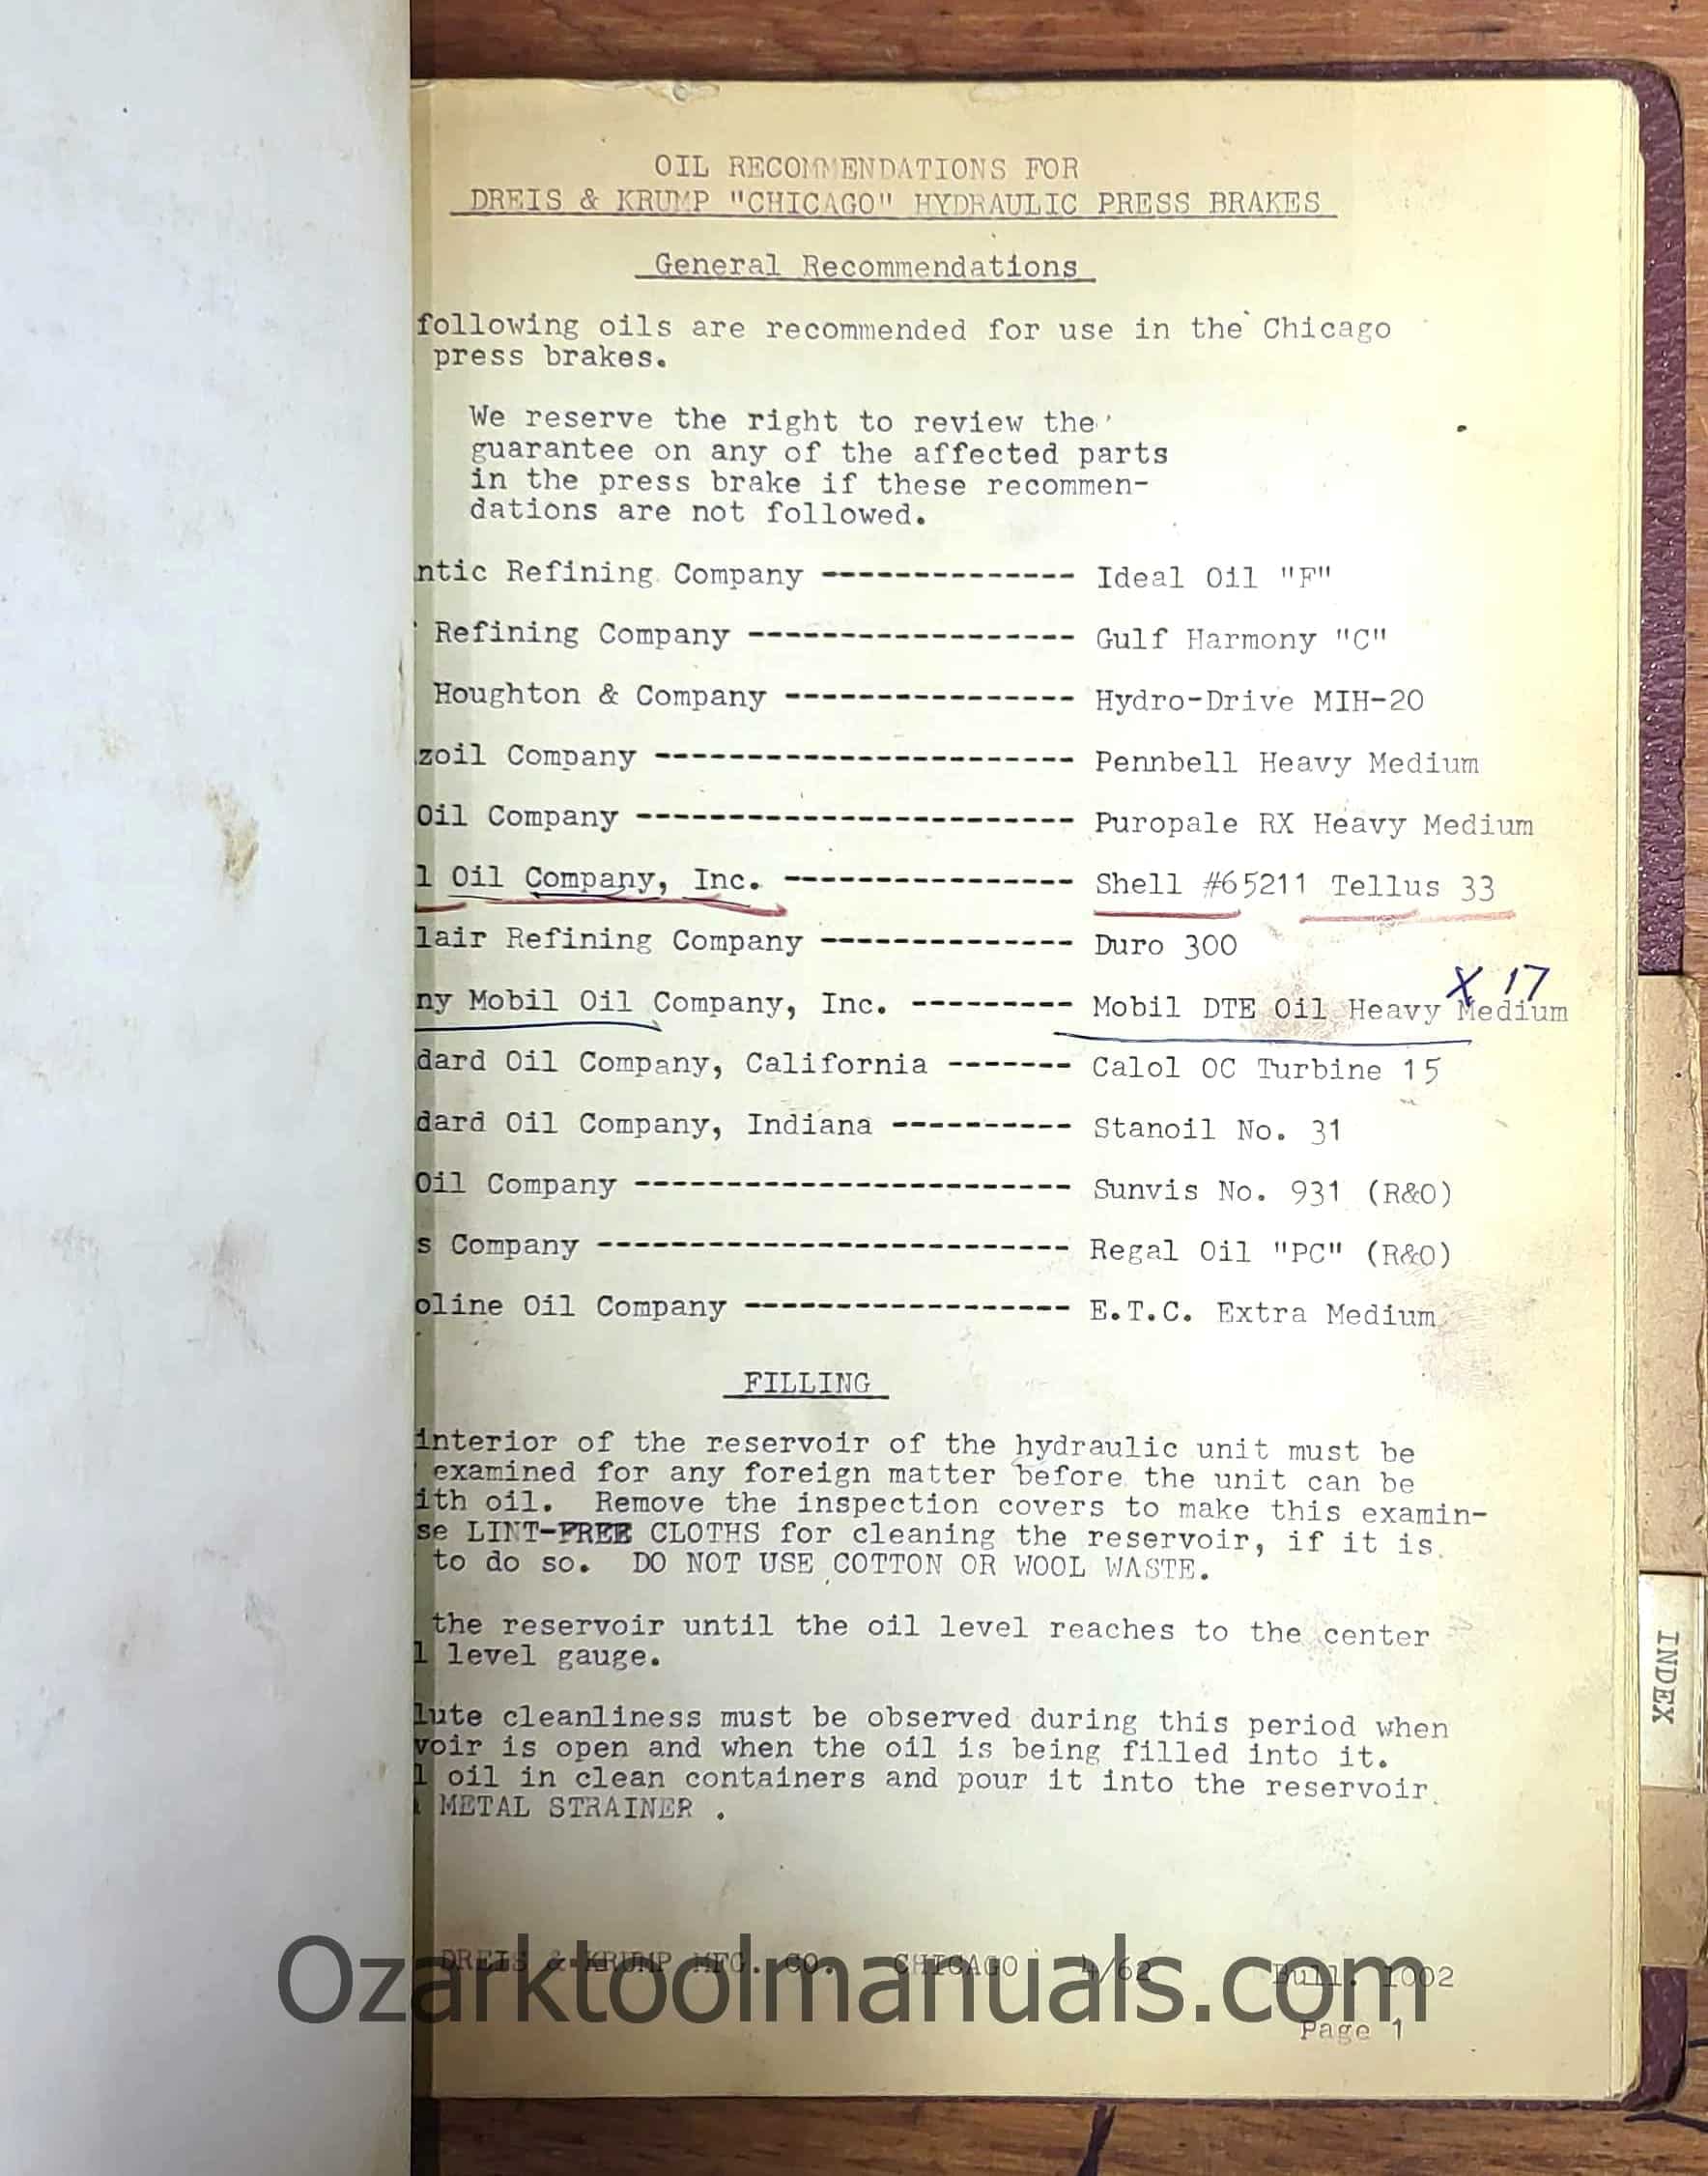 OIL RECOMMENDATIONS FOR
DREIS & KRUMP "CHICAGO" HYDRAULIC PRESS BRAKES
General Recommendations
following oils are recommended for use in the Chicago
press brakes.
We reserve the right to review the
guarantee on any of the affected parts
in the press brake if these recommen-
dations are not followed.
ntic Refining Company -------------- Ideal Oil "F"
Refining Company ------------------ Gulf Harmony "C"
Houghton & Company ---------------- Hydro-Drive MIH-20
zoil Company ----------------------- Pennbell Heavy Medium
Oil Company ------------------------ Puropale RX Heavy Medium
l Oil Company, Inc. ---------------- Shell #65211 Tellus 33
lair Refining Company -------------- Duro 300
X 17
ny Mobil Oil Company, Inc. --------- Mobil DTE Oil Heavy Medium
dard Oil Company, California ------- Calol OC Turbine 15
dard Oil Company, Indiana ---------- Stanoil No. 31
Oil Company ------------------------ Sunvis No. 931 (R&O)
s Company -------------------------- Regal Oil "PC" (R&O)
oline Oil Company ------------------ E.T.C. Extra Medium
FILLING
interior of the reservoir of the hydraulic unit must be
examined for any foreign matter before the unit can be
ith oil. Remove the inspection covers to make this examin-
se LINT-FREE CLOTHS for cleaning the reservoir, if it is
to do so. DO NOT USE COTTON OR WOOL WASTE.
the reservoir until the oil level reaches to the center
l level gauge.
lute cleanliness must be observed during this period when
voir is open and when the oil is being filled into it.
l oil in clean containers and pour it into the reservoir
METAL STRAINER .
DREIS & KRUMP MFG. CO. CHICAGO 4/62 Bull. 1002
Page 1
INDEX
Ozarktoolmanuals.com